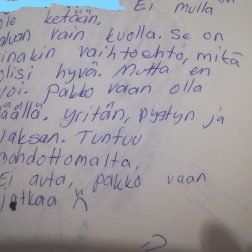 Ei mulla
ole ketään.
aluan vain kuolla. Se on
inakin vaihtoehto, mikä
olisi hyvä. Mutta en
voi. Pakko vaan olla
täällä. Yritän, pystyn ja
jaksan. Tuntuu
mahdottomalta.
Ei auta, pakko vaan
jatkaa :(